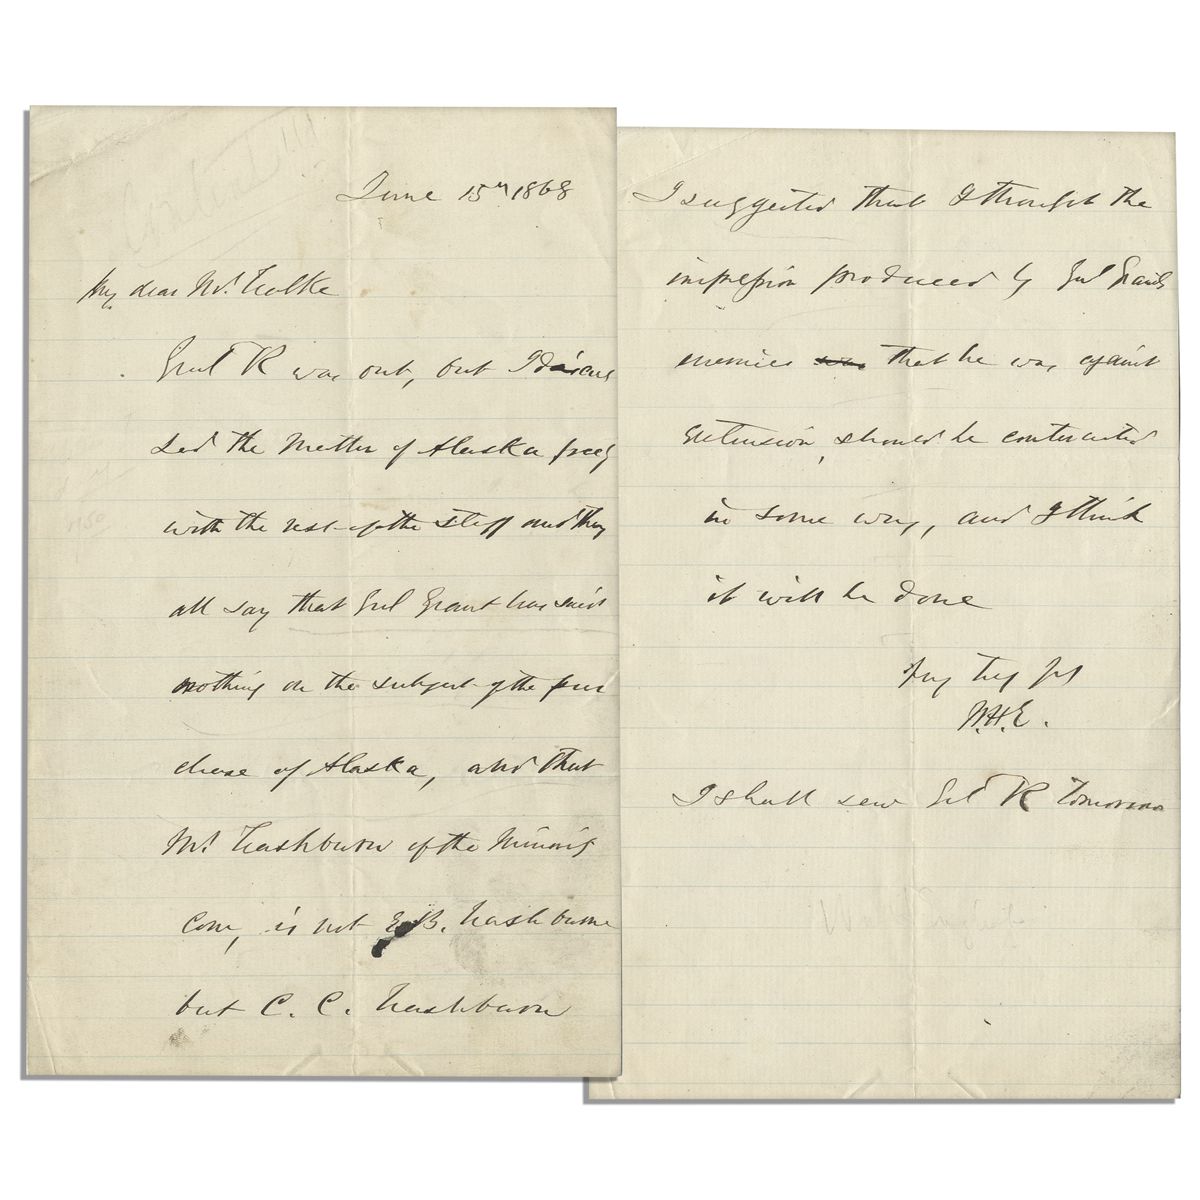 June 15th 1868
My dear Mr. Walke
Genl R was out, but I discus
sed the matter of Alaska freely
with the rest of the staff and they
all say that Genl Grant has said
nothing on the subject of the pur
chase of Alaska, and that
Mr Washburn of the Minority
Com, is not E.B. Washburne
but C. C. Washburn
I suggested that I thought the
impression produced by Genl Grants
enemies was that he was against
extension, should be contracted
in some way, and I think
it will be done
Very truly yrs
W.H.E.
I shall see Genl R tomorrow